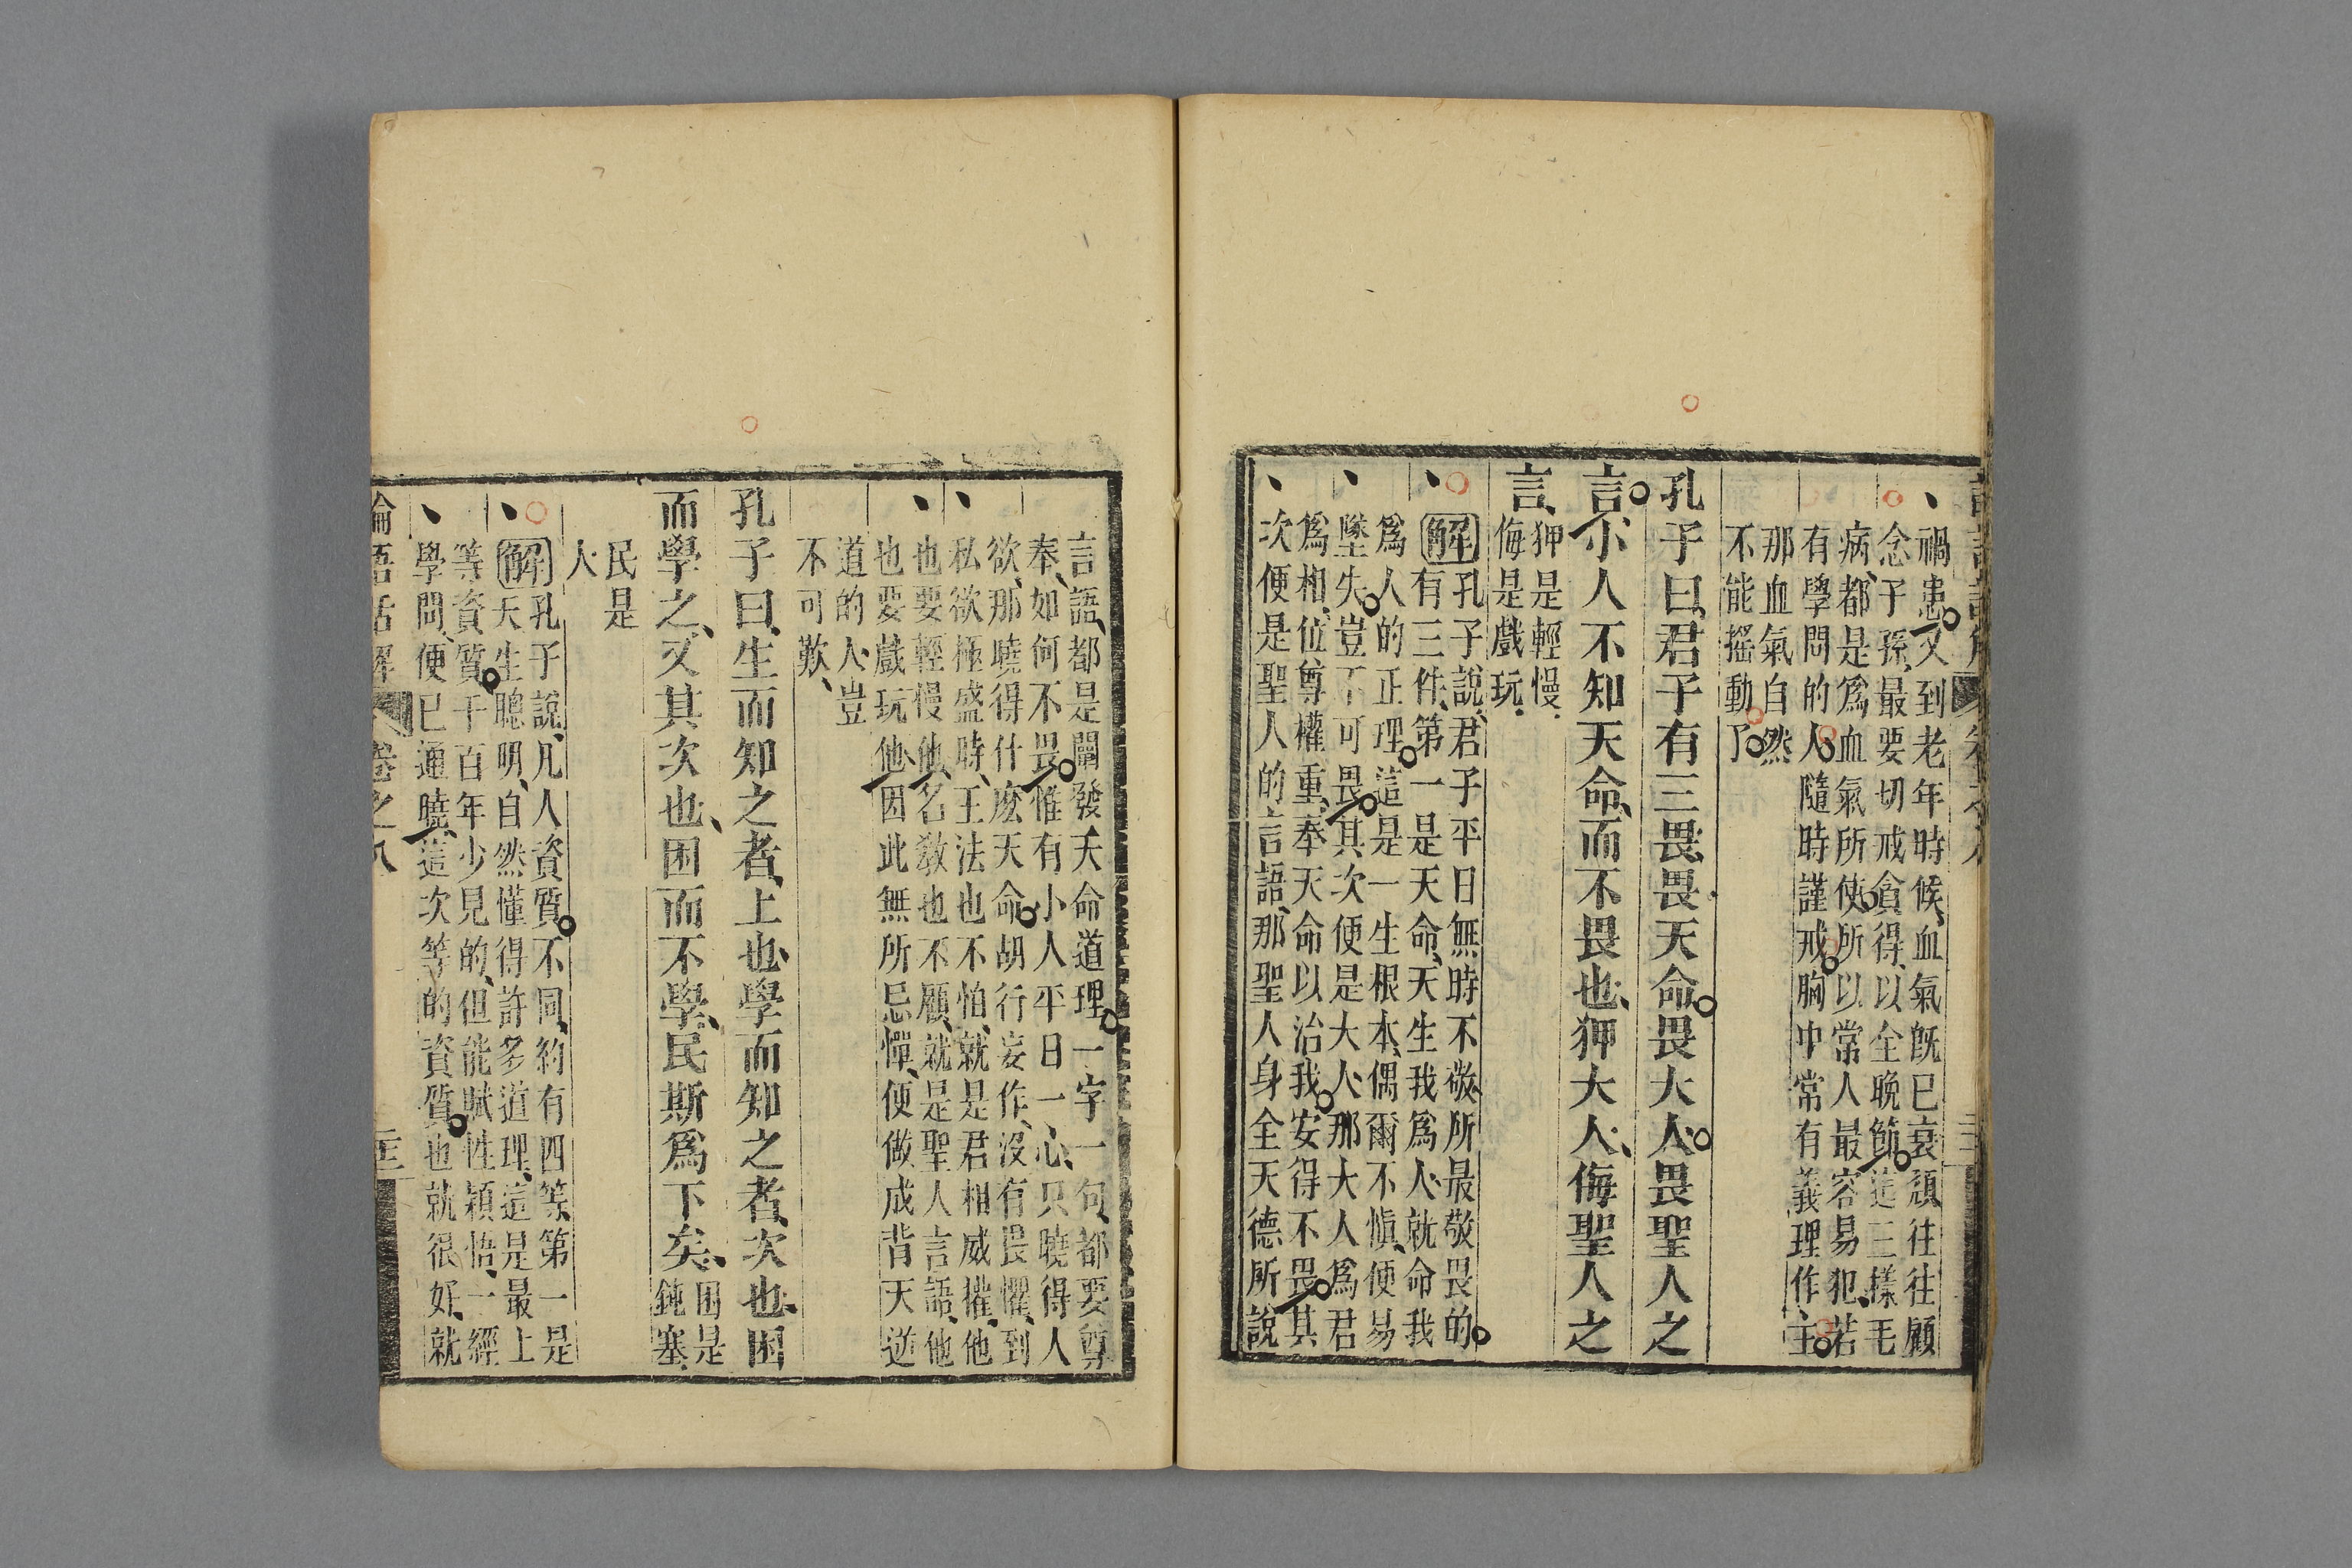 禍患、又到老年時候、血氣旣已衰頹、往往顧
念子孫、最要切戒貪得、以全晚節、這三樣毛
病、都是爲血氣所使、所以常人最容易犯、若
有學問的人、隨時謹戒、胸中常有義理作主、
那血氣自然
不能搖動了
孔子曰、君子有三畏、畏天命、畏大人、畏聖人之
言、小人不知天命、而不畏也、狎大人、侮聖人之
言、狎是輕慢、
侮是戲玩、
解孔子說、君子平日無時不敬、所最敬畏的
有三件、第一是天命、天生我爲人、就命我
爲人的正理、這是一生根本、偶爾不愼、便易
墜失、豈不可畏、其次便是大人、那大人爲君
爲相、位尊權重、奉天命以治我、安得不畏、其
次便是聖人的言語、那聖人身全天德、所說
言語、都是闡發天命道理、一字一句、都要尊
奉、如何不畏、惟有小人平日一心、只曉得人
欲、那曉得什麽天命、胡行妄作、沒有畏懼、到
私欲極盛時、王法也不怕、就是君相威權、他
也要輕慢他、名敎也不顧、就是聖人言語、他
也要戲玩他、因此無所忌憚、便做成背天逆
道的人、豈
不可歎、
孔子曰、生而知之者、上也、學而知之者、次也、困
而學之、又其次也、困而不學、民斯爲下矣、困是
鈍塞、
民是
人、
解孔子說、凡人資質不同、約有四等、第一是
天生聰明、自然懂得許多道理、這是最上
等資質、千百年少見的、但能賦性穎悟、一經
學問、便已通曉、這次等的資質、也就很好、就
論語話解 卷之八